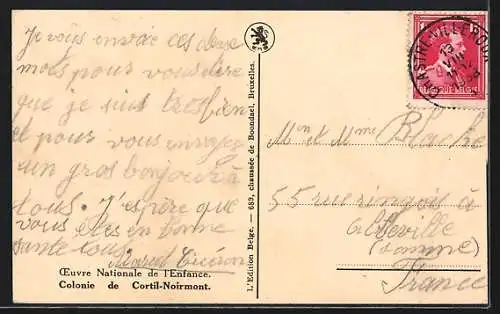 Je vous envoie ces deux
mots pour vous dire
que je suis très bien
et pour vous envoyer
un gros bonjour à
tous. J'espère que
vous êtes en bonne
santé tous.
Marcel
Œuvre Nationale de l'Enfance.
Colonie de Cortil-Noirmont.
L'Edition Belge. — 683, chaussée de Boondael, Bruxelles.
CHASTRE-VILLEROUX
BELGIQUE-BELGIE
Mr et Mme Bloche
55 rue
Abbeville
(Somme)
France